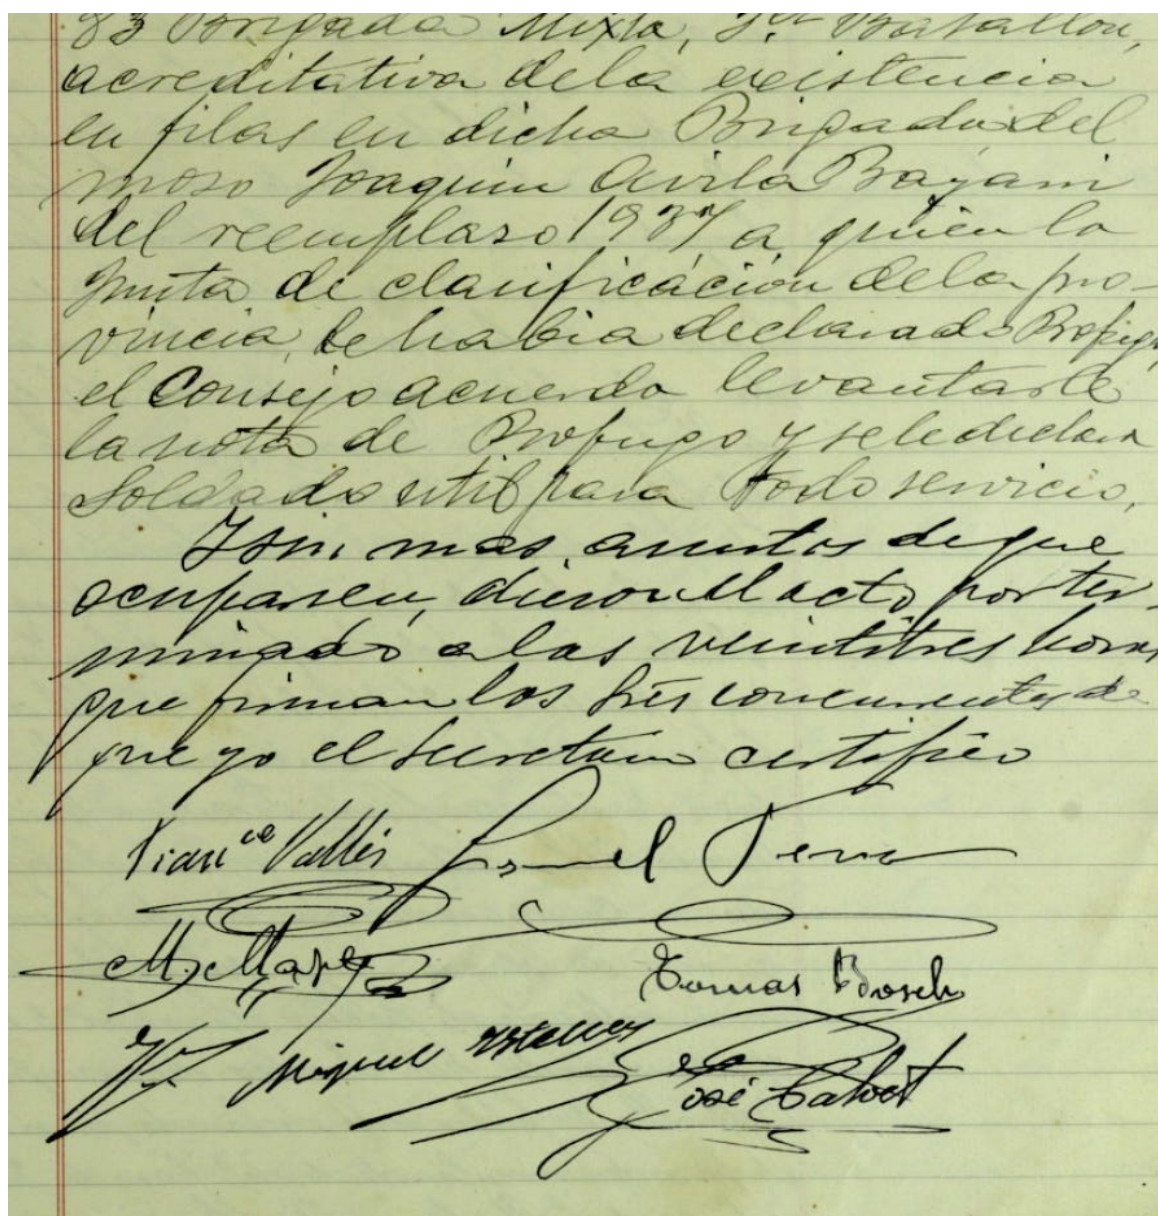 83 Brigada Mixta, 1.er Batallon,
acreditativa dela existencia
en filas en dicha Brigada del
moso Joaquin Avila Bayarri
del reemplaso 1937 a quien la
Junta de clasificáción dela pro-
vincia, le habia declarado Profugo
el Consejo acuerda levantarle
la nota de Profugo y se le declara
Soldado util para todo servicio.
Y sin mas asuntos de que
ocuparsen, dieron el acto por ter-
minado a las veintitres horas
que firman los tres concurrentes de
que yo el secretario certifico
Franco Vallés
Tomas Bosch
Miguel
José Calvet